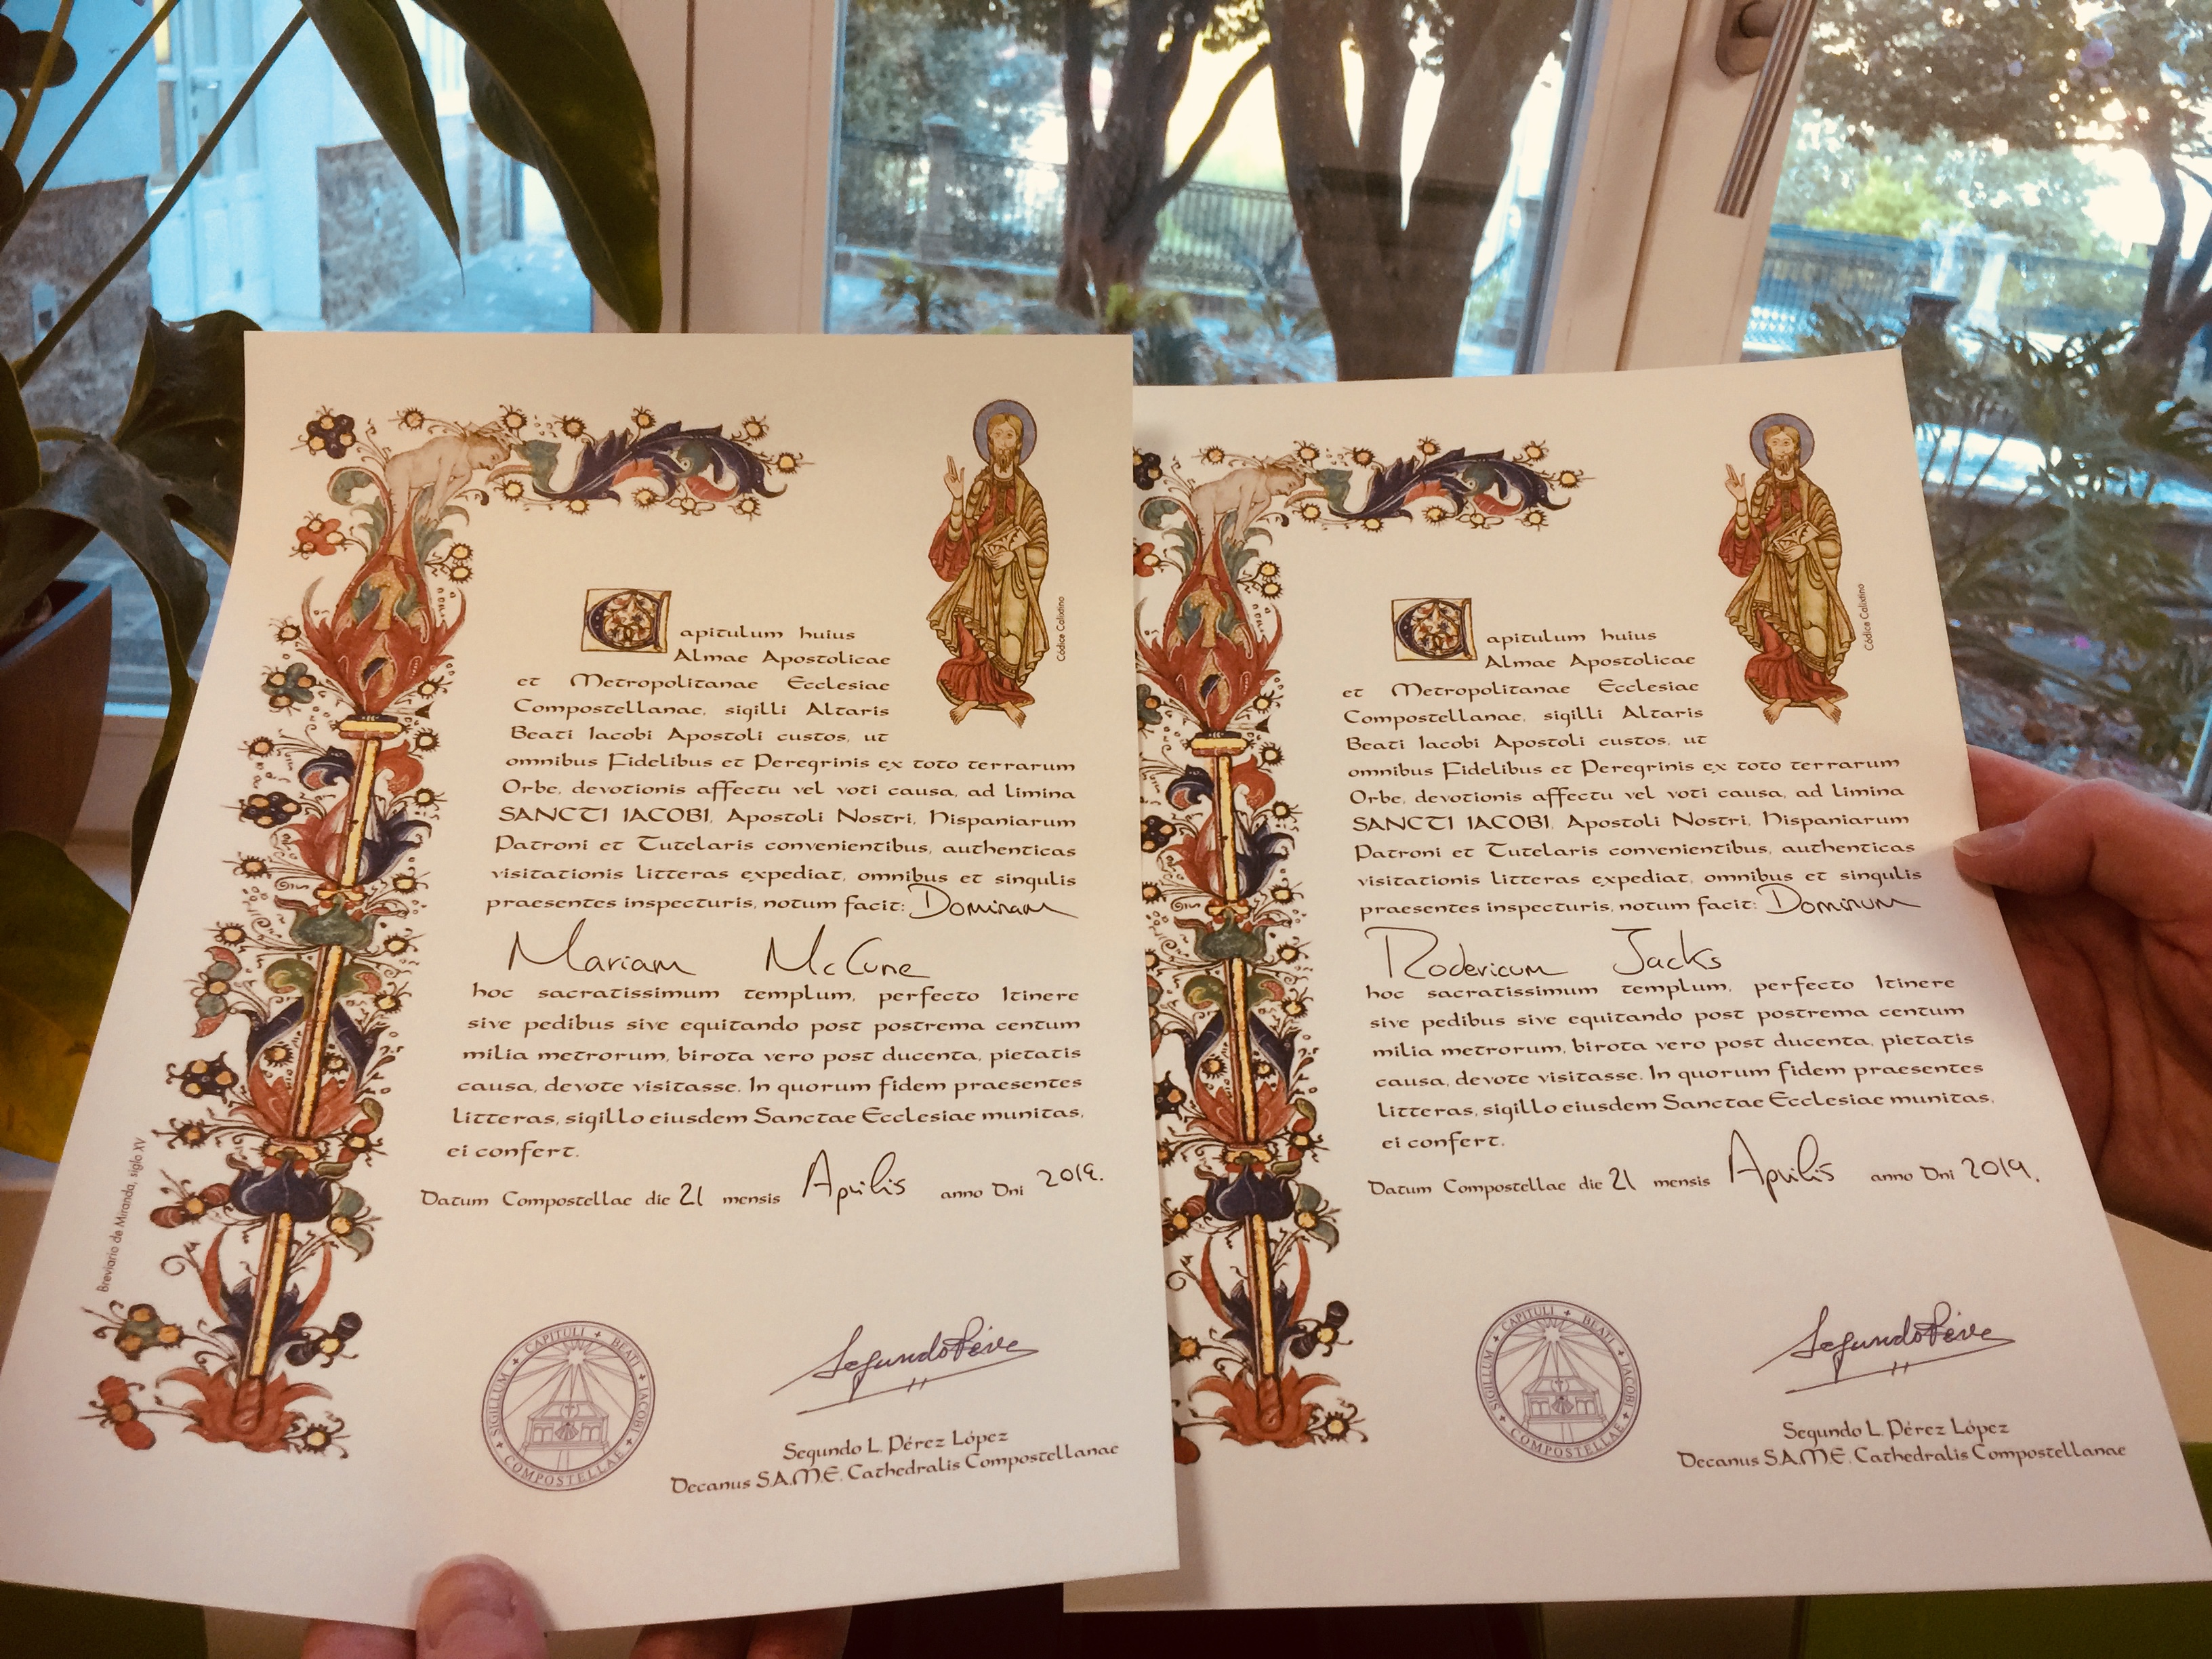 Capitulum huius
Almae Apostolicae
et Metropolitanae Ecclesiae
Compostellanae, sigilli Altaris
Beati Iacobi Apostoli custos, ut
omnibus Fidelibus et Peregrinis ex toto terrarum
Orbe, devotionis affectu vel voti causa, ad limina
SANCTI IACOBI, Apostoli Nostri, Hispaniarum
Patroni et Tutelaris convenientibus, authenticas
visitationis litteras expediat, omnibus et singulis
praesentes inspecturis, notum facit: Dominam
Mariam McCune
hoc sacratissimum templum, perfecto Itinere
sive pedibus sive equitando post postrema centum
milia metrorum, birota vero post ducenta, pietatis
causa, devote visitasse. In quorum fidem praesentes
litteras, sigillo eiusdem Sanctae Ecclesiae munitas,
ei confert.
Datum Compostellae die 21 mensis Aprilis anno Dni 2019.
Códice Calixtino
Breviario de Miranda, siglo XV
SIGILLUM + CAPITULI + BEATI + JACOBI + COMPOSTELLAE +
Segundo Pérez
Segundo L. Pérez López
Decanus S.A.M.E. Cathedralis Compostellanae
Capitulum huius
Almae Apostolicae
et Metropolitanae Ecclesiae
Compostellanae, sigilli Altaris
Beati Iacobi Apostoli custos, ut
omnibus Fidelibus et Peregrinis ex toto terrarum
Orbe, devotionis affectu vel voti causa, ad limina
SANCTI IACOBI, Apostoli Nostri, Hispaniarum
Patroni et Tutelaris convenientibus, authenticas
visitationis litteras expediat, omnibus et singulis
praesentes inspecturis, notum facit: Dominum
Rodericum Jacks
hoc sacratissimum templum, perfecto Itinere
sive pedibus sive equitando post postrema centum
milia metrorum, birota vero post ducenta, pietatis
causa, devote visitasse. In quorum fidem praesentes
litteras, sigillo eiusdem Sanctae Ecclesiae munitas,
ei confert.
Datum Compostellae die 21 mensis Aprilis anno Dni 2019.
Códice Calixtino
SIGILLUM + CAPITULI + BEATI + JACOBI + COMPOSTELLAE +
Segundo Pérez
Segundo L. Pérez López
Decanus S.A.M.E. Cathedralis Compostellanae